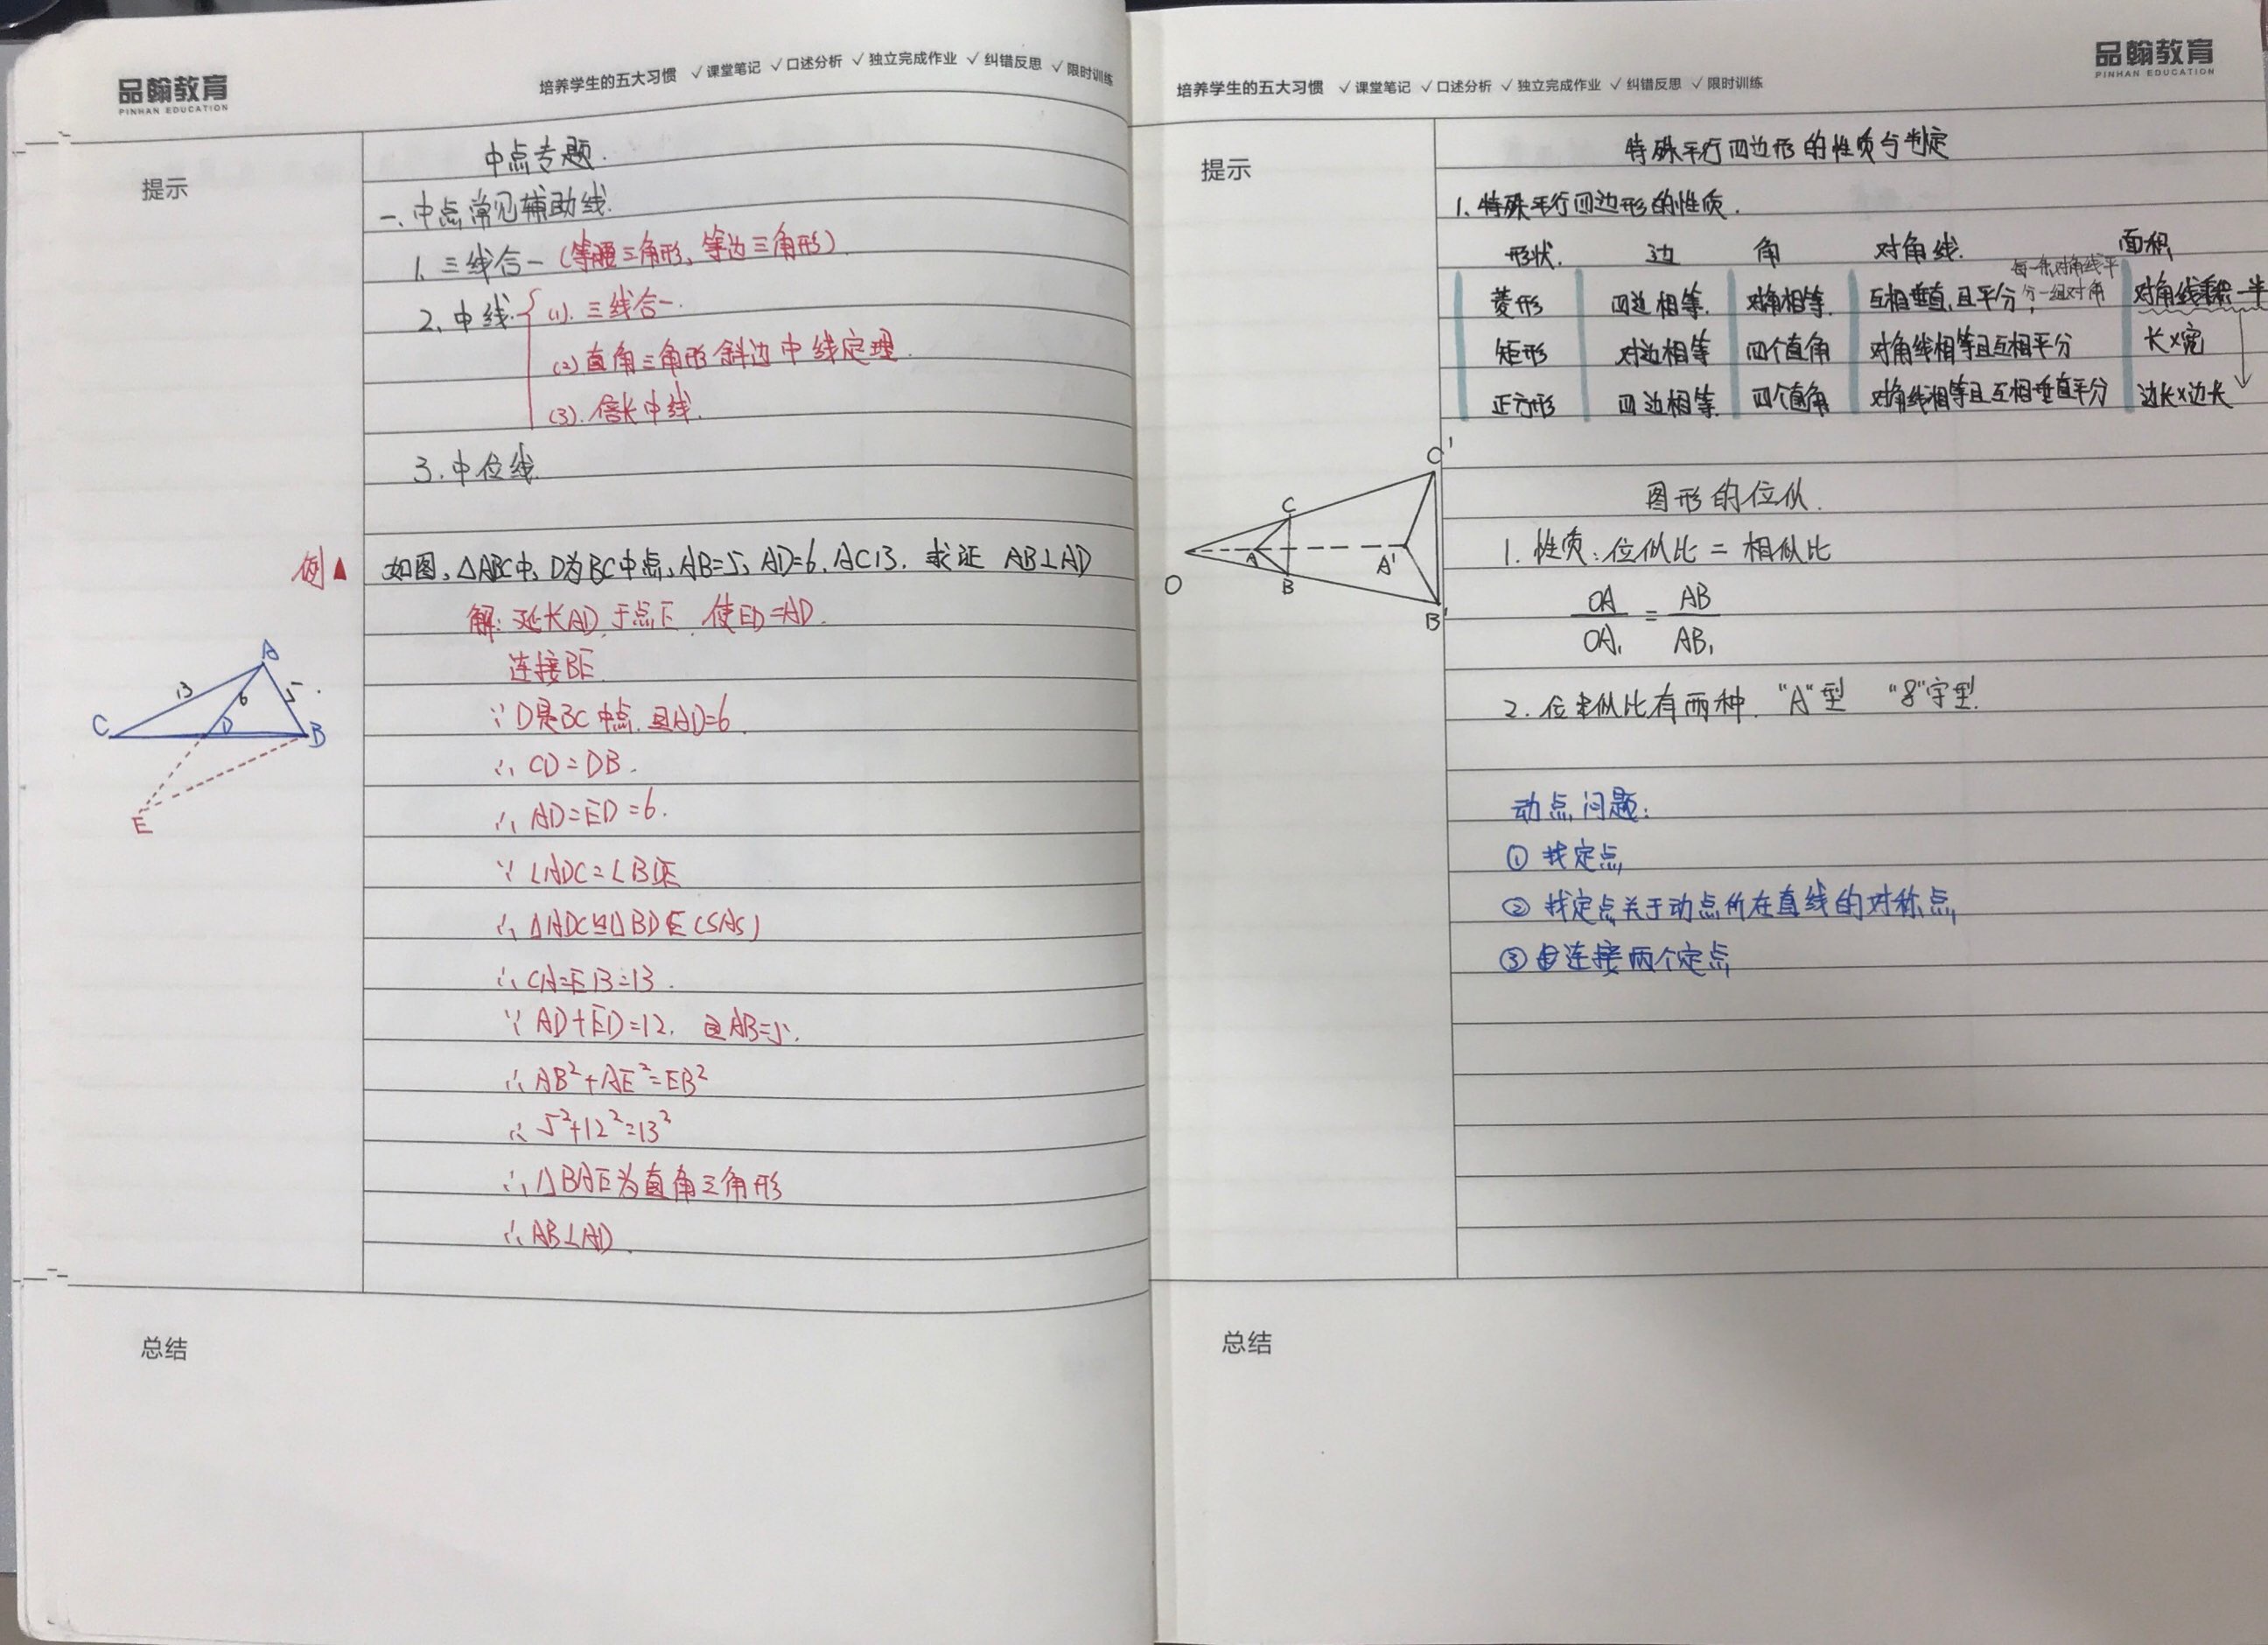 品翰教育
PINHAN EDUCATION
培养学生的五大习惯 √课堂笔记 √口述分析 √独立完成作业 √纠错反思 √限时训练
提示
中点专题.
一、中点常见辅助线.
1. 三线合一 (等腰三角形, 等边三角形)
2. 中线
(1). 三线合一.
(2) 直角三角形斜边中线定理.
(3). 倍长中线.
3. 中位线
例▲
如图, △ABC中, D为BC中点, AB=5, AD=6, AC13. 求证 AB⊥AD
解: 延长AD于点E, 使ED=AD.
连接BE
∵ D是BC中点. 且AD=6.
∴ CD=DB.
∴ AD=ED=6.
∵ ∠ADC=∠BDE
∴ △ADC≌△BDE (SAS)
∴ CA=EB=13.
∵ AD+ED=12. 且AB=5.
∴ AB²+AE²=EB²
∴ 5²+12²=13²
∴ △BAE为直角三角形
∴ AB⊥AD.
A
13
6
5
C
D
B
E
总结
品翰教育
PINHAN EDUCATION
培养学生的五大习惯 √课堂笔记 √口述分析 √独立完成作业 √纠错反思 √限时训练
提示
特殊平行四边形的性质与判定
1. 特殊平行四边形的性质.
形状. 边 角 对角线. 面积
菱形 四边相等. 对角相等. 互相垂直, 且平分, 每一条对角线平分一组对角 对角线乘积一半
矩形 对边相等 四个直角 对角线相等且互相平分 长×宽
正方形 四边相等 四个直角 对角线相等且互相垂直平分 边长×边长
C'
C
O
A
A'
B
B'
图形的位似.
1. 性质: 位似比 = 相似比
OA/OA₁ = AB/AB₁
2. 位似比有两种. "A"型 "8"字型.
动点问题:
① 找定点
② 找定点关于动点所在直线的对称点
③ 连接两个定点
总结